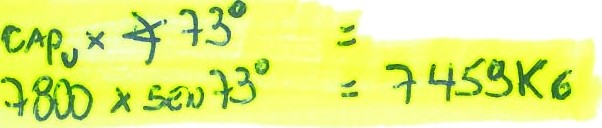 CAPU x ∢ 73° =
7800 x SEN 73° = 7459KG